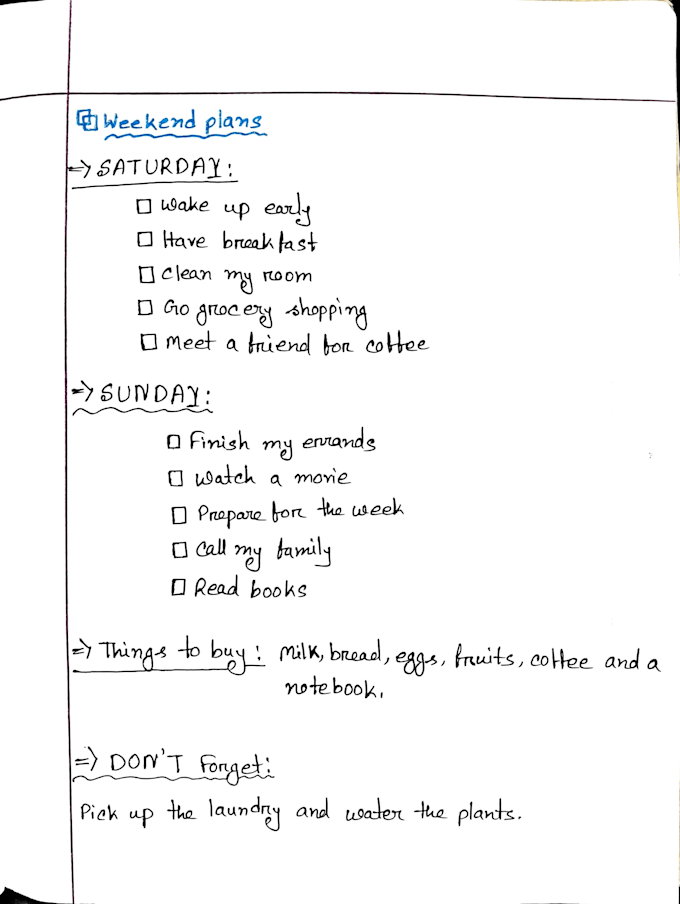 Weekend plans
=> SATURDAY:
☐ Wake up early
☐ Have breakfast
☐ Clean my room
☐ Go grocery shopping
☐ Meet a friend for coffee
=> SUNDAY:
☐ Finish my errands
☐ Watch a movie
☐ Prepare for the week
☐ Call my family
☐ Read books
=> Things to buy: Milk, bread, eggs, fruits, coffee and a
notebook.
=> DON'T Forget:
Pick up the laundry and water the plants.